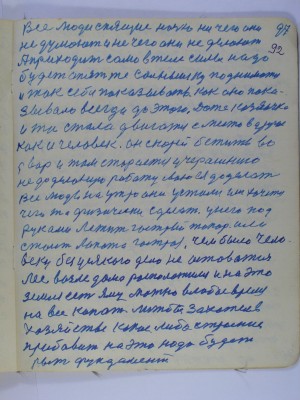 97
92
Все люди спящие ночью ни чего они
не думают и не чего они не делают
А приходит само в теле силы надо
будет опять же солнышку поднимать
и так себя показывать как оно пока-
зывало всегда до этого, тоже хозяйка
и та стала двигать с места в другое
как и человек. он скорей бежит во
двор и там старается вчерашнию
не доделанную работу свою доделат
Все люди на утро они устали им хочется
чего то физически сделат. у него под
руками лежит готовый топор, или
стоит лопата готова, чем было чело-
веку безцелого дело не
лее возле дома расположился и на это
земля ест Яму можно в любое время
на ве копат. Захотев
хозяйстве какое либо строение
прибавит на это надо будет
рыть фундамент